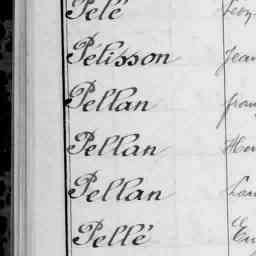 Pelé
Pélisson Jean
Pellan
Pellan
Pellan
Pellé